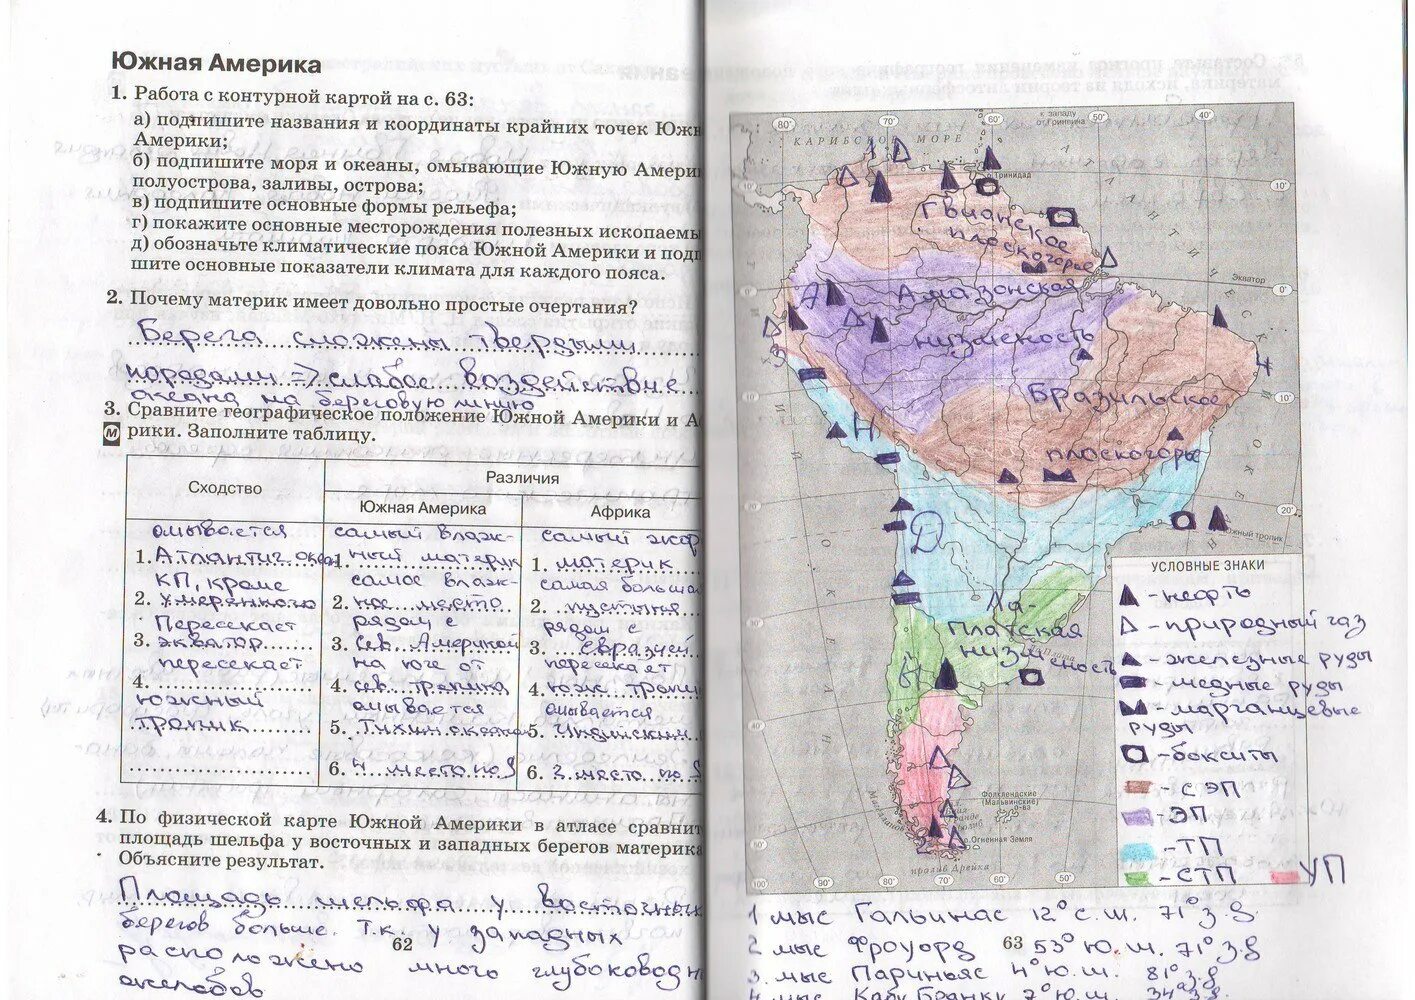 Южная Америка
1. Работа с контурной картой на с. 63:
а) подпишите названия и координаты крайних точек Южн
Америки;
б) подпишите моря и океаны, омывающие Южную Амери
полуострова, заливы, острова;
в) подпишите основные формы рельефа;
г) покажите основные месторождения полезных ископаемы
д) обозначьте климатические пояса Южной Америки и подп
шите основные показатели климата для каждого пояса.
2. Почему материк имеет довольно простые очертания?
Берега сложены твердыми
породами => слабое воздействие
океана на береговую линию
3. Сравните географическое положение Южной Америки и А
М рики. Заполните таблицу.
Сходство
Различия
Южная Америка
Африка
омывается
1. Атлантич. океан
КП, кроме
2. умеренного
Пересекает
3. экватор
пересекает
4.
южный
тропик
самый влаж-
1. ный материк
самое влаж-
2. ное место
рядом с
3. Сев. Америкой
на юге от
4. сев. тропика
омывается
5. Тихим океаном
6. 4 место по S
самый жар
1. материк
самая больша
2. пустыня
рядом с
3. Евразией
пересекает
4. южн. тропи
омывается
5. Индийским
6. 2 место по S
4. По физической карте Южной Америки в атласе сравнит
площадь шельфа у восточных и западных берегов материка
Объясните результат.
Площадь шельфа у восточных
берегов больше. Т.к. у западных
расположено много глубоководн
желобов
62
80° 70° 60° 50° 40°
к западу
от Гринвича
КАРИБСКОЕ МОРЕ
о. Тринидад
10° 10°
Гвианское
плоскогорье
АТЛАНТИЧЕСКИЙ ОКЕАН
Экватор
0° 0°
А
Амазонская
низменность
3
4
10° 10°
Бразильское
плоскогорье
20°
Южный тропик
Д
УСЛОВНЫЕ ЗНАКИ
- нефть
- природный газ
- железные руды
- медные руды
- марганцевые
руды
- бокситы
- СЭП
- ЭП
- ТП
- СТП
УП
Ла-
Платская
низм
енность
Фолклендские
(Мальвинские)
о-ва
о. Огненная Земля
пролив Дрейка
100° 90° 80° 70° 60° 50°
1 мыс Гальинас 12° с.ш. 71° з.д.
2 мыс Фроуорд 63 53° ю.ш. 71° з.д
3. мыс Париньяс 4° ю.ш. 81° з.д
4. мыс Кабу Бранку 7° ю.ш. 34° з.д.